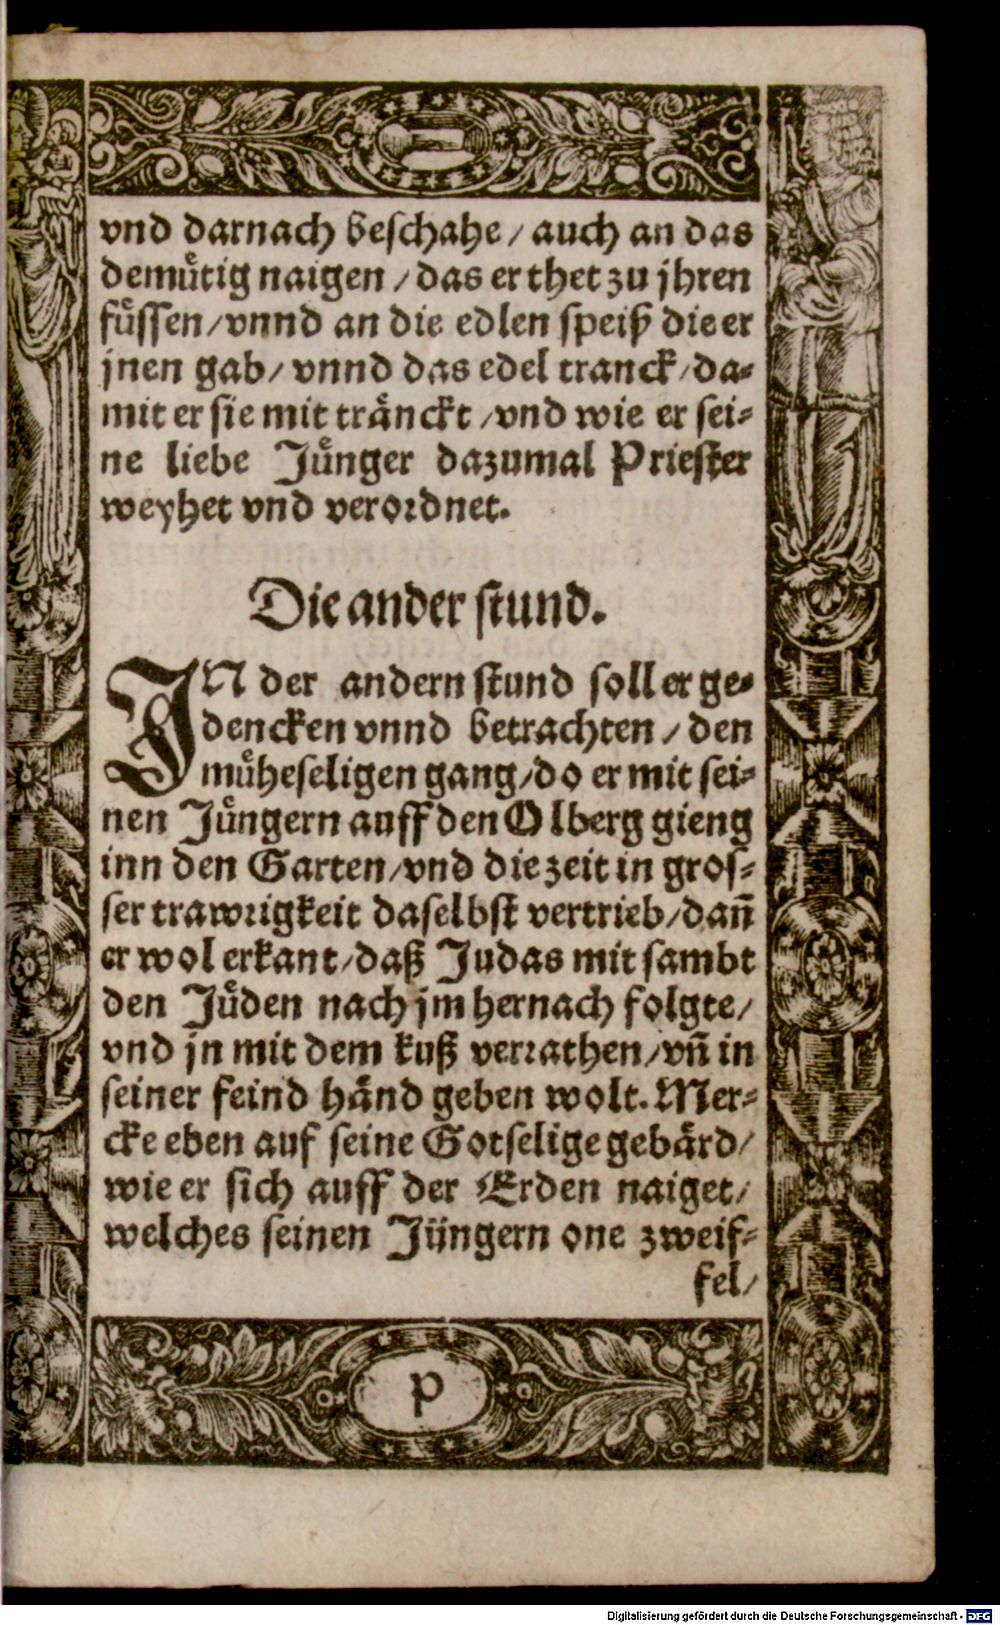 vnd darnach beschahe / auch an das
demuͤtig naigen / das er thet zu jhren
fuͤssen / vnnd an die edlen speiß die er
jnen gab / vnnd das edel tranck / da⸗
mit er sie mit traͤnckt / vnd wie er sei⸗
ne liebe Juͤnger dazumal Priester
weyhet vnd verordnet.
Die ander stund.
IN der andern stund soll er ge⸗
dencken vnnd betrachten / den
muͤheseligen gang / do er mit sei⸗
nen Juͤngern auff den Olberg gieng
inn den Garten / vnd die zeit in gros⸗
ser trawrigkeit daselbst vertrieb / dan̄
er wol erkant / daß Judas mit sambt
den Juͤden nach jm hernach folgte /
vnd jn mit dem kuß verrathen / vn̄ in
seiner feind haͤnd geben wolt. Mer⸗
cke eben auf seine Gotselige gebaͤrd /
wie er sich auff der Erden naiget /
welches seinen Jüngern one zweif⸗
fel /
p
Digitalisierung gefördert durch die Deutsche Forschungsgemeinschaft - DFG